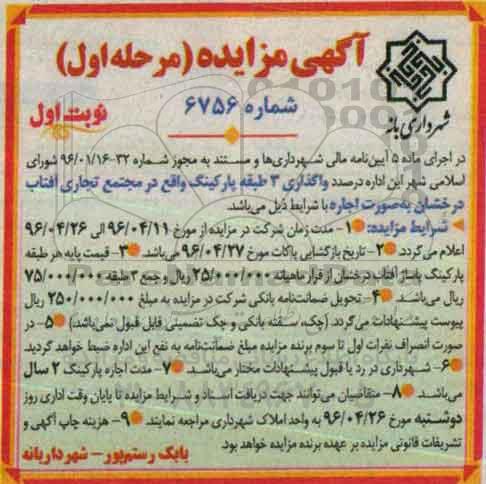 آگهی مزایده (مرحله اول)
شماره ۶۷۵۶
نوبت اول
شهرداری بانه
در اجرای ماده ۵ آیین‌نامه مالی شهرداری‌ها و مستند به مجوز شماره ۳۲-۹۶/۰۱/۱۶ شورای
اسلامی شهر این اداره درصدد واگذاری ۳ طبقه پارکینگ واقع در مجتمع تجاری آفتاب
درخشان به‌صورت اجاره با شرایط ذیل می‌باشد.
شرایط مزایده: ۱- مدت زمان شرکت در مزایده از مورخ ۹۶/۰۴/۱۱ الی ۹۶/۰۴/۲۶
اعلام می‌گردد. ۲- تاریخ بازگشایی پاکات مورخ ۹۶/۰۴/۲۷ می‌باشد. ۳- قیمت پایه هر طبقه
پارکینگ پاساژ آفتاب درخشان از قرار ماهیانه ۲۵/۰۰۰/۰۰۰ ریال و جمع ۳ طبقه ۷۵/۰۰۰/۰۰۰
ریال می‌باشد. ۴- تحویل ضمانت‌نامه بانکی شرکت در مزایده به مبلغ ۲۵۰/۰۰۰/۰۰۰ ریال
پیوست پیشنهادات می‌گردد. (چک، سفته بانکی و چک تضمینی قابل قبول نمی‌باشد) ۵- در
صورت انصراف نفرات اول تا سوم برنده مزایده مبلغ ضمانت‌نامه به نفع این اداره ضبط خواهد گردید.
۶- شهرداری در رد یا قبول پیشنهادات مختار می‌باشد. ۷- مدت اجاره پارکینگ ۲ سال
می‌باشد. ۸- متقاضیان می‌توانند جهت دریافت اسناد و شرایط مزایده تا پایان وقت اداری روز
دوشنبه مورخ ۹۶/۰۴/۲۶ به واحد املاک شهرداری مراجعه نمایند. ۹- هزینه چاپ آگهی و
تشریفات قانونی مزایده بر عهده برنده مزایده خواهد بود.
بابک رستم‌پور- شهردار بانه